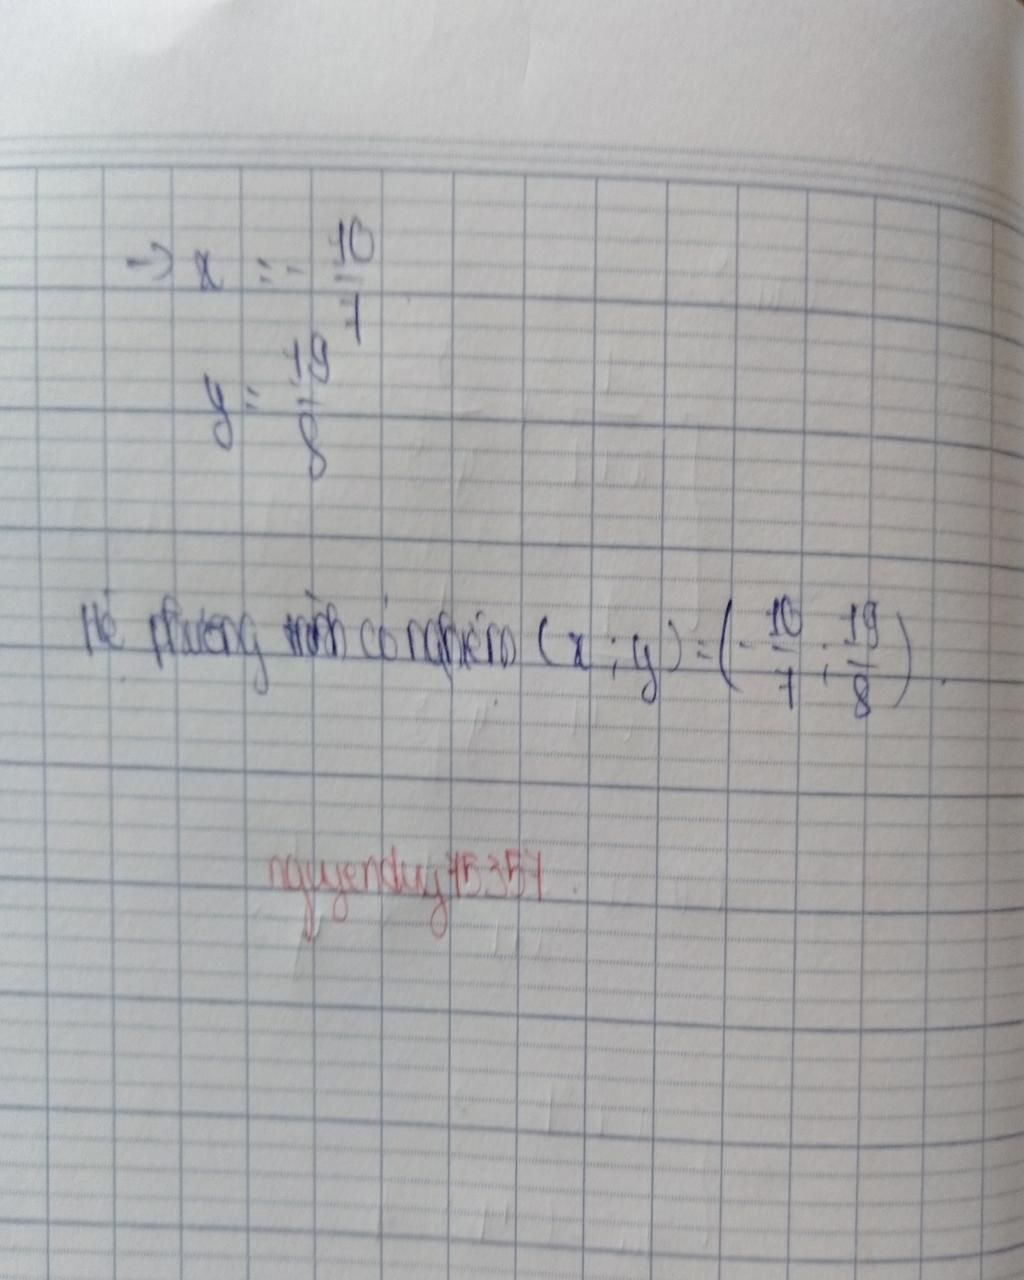 → x = - 10/7
y = 19/8
Hệ phương trình có nghiệm (x ; y) = (- 10/7 ; 19/8).
nguyenduy15357